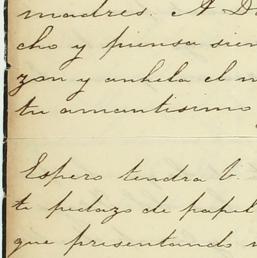 madres. A D
cho y piensa sien
zon y anhela el m
tu amantisimo
Espero tendra V.
te pedazo de papel
que presentando